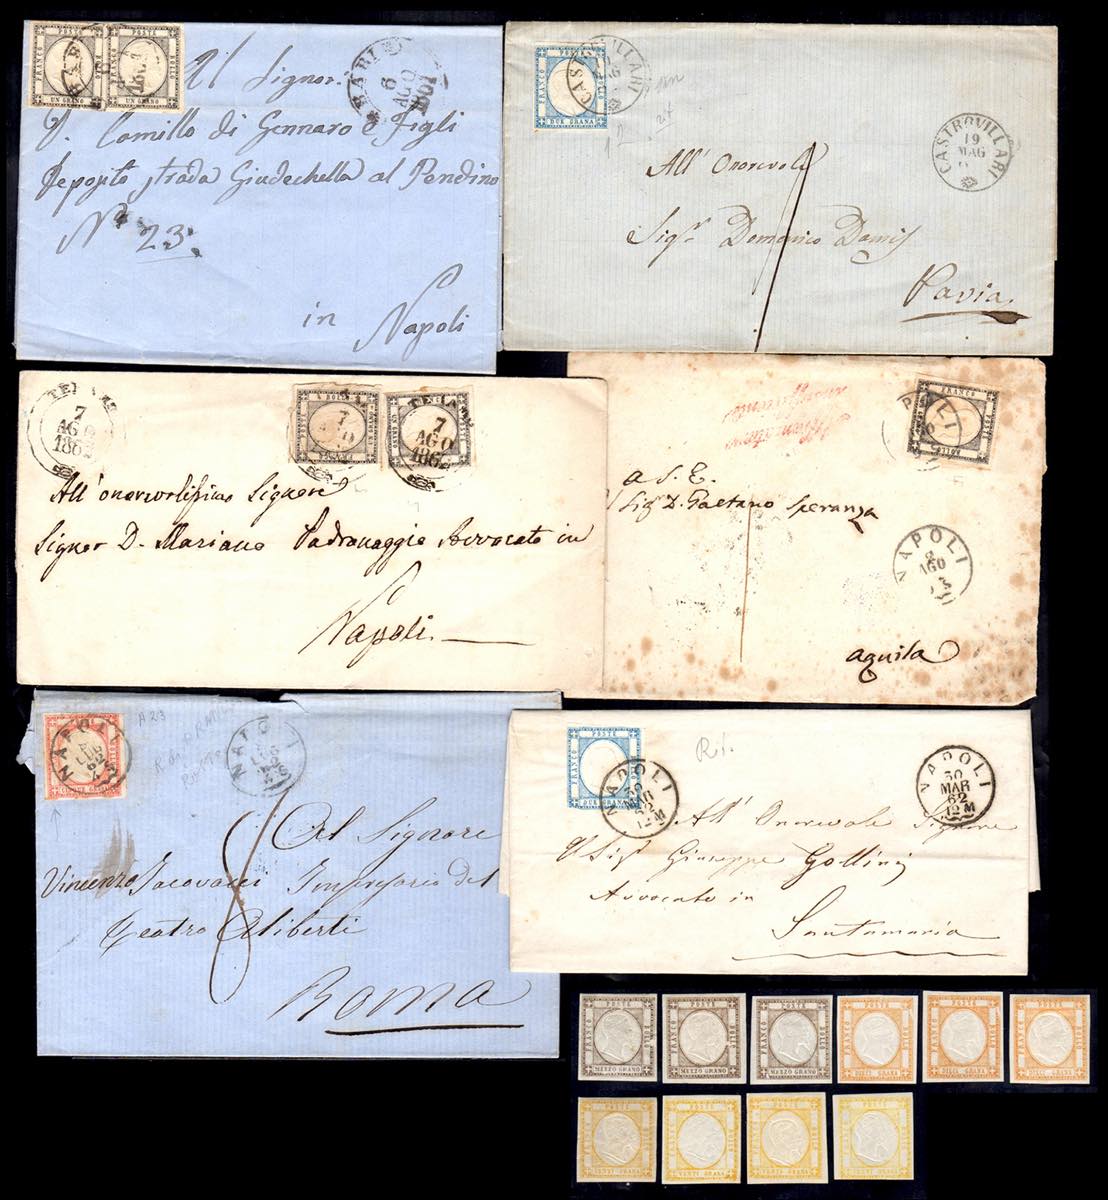 FRANCO POSTE BOLLO UN GRANO
FRANCO POSTE BOLLO UN GRANO
BARI
6
AGO
1861
Al Signor
D. Camillo di Gennaro e Figli
Deposito strada Giudechella al Pendino
N° 23.
in
Napoli
FRANCO POSTA BOLLO DUE GRANA
CASTROVILLARI
12
CASTROVILLARI
19
MAG
All' Onorevole
Sig.r Domenico Damis
Pavia
7
AGO
1862
POSTE BOLLO UN GRANO FRANCO
7
AGO
1862
FRANCO POSTE BOLLO UN GRANO
7
AGO
1862
All' onorevolissimo Signore
Signor D. Mariano Padronaggio Avvocato in
Napoli.
POSTE BOLLO
NAPOLI
a S. E.
Sig D. Gaetano Speranza
NAPOLI
2
AGO
aquila
NAPOLI
LUG
62
CINQUE GRANA
A 23
NAPOLI
LUG
62
8
Al Signore
Vincenzo Jacovacci Impresario del
Teatro Aliberti
Roma
FRANCO POSTE BOLLO DUE GRANA
NAPOLI
30
MAR
62
12 M
NAPOLI
30
MAR
62
12 M
All' Onorevole Signore
Sig.r Giuseppe Gollini
Avvocato in
Santamaria
FRANCO POSTE BOLLO MEZZO GRANO
FRANCO POSTE BOLLO MEZZO GRANO
FRANCO POSTE BOLLO MEZZO GRANO
FRANCO POSTE BOLLO DIECI GRANA
FRANCO POSTE BOLLO DIECI GRANA
FRANCO POSTE BOLLO DIECI GRANA
FRANCO POSTE BOLLO VENTI GRANA
FRANCO POSTE BOLLO VENTI GRANA
FRANCO POSTE BOLLO VENTI GRANA
FRANCO POSTE BOLLO VENTI GRANA